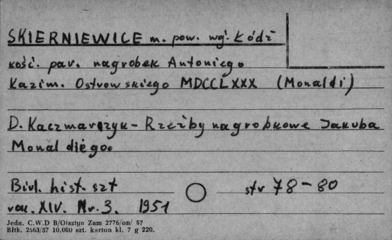 SKIERNIEWICE m. pow. wg. Łódź
kość. par. nagrobek Antoniego
Kazim. Ostrowskiego MDCCLXXX (Monaldi)
D. Kaczmarzyk - Rzeźby nagrobkowe Jakuba
Monaldiego
Biul. hist. szt str 78-80
rou. XIV. Nr. 3. 1951
Jedn. C.W.D B/Olsztyn Zam 2776/on/ 57
Bltk. 2563/57 10.000 szt. karton kl. 7 g 220.